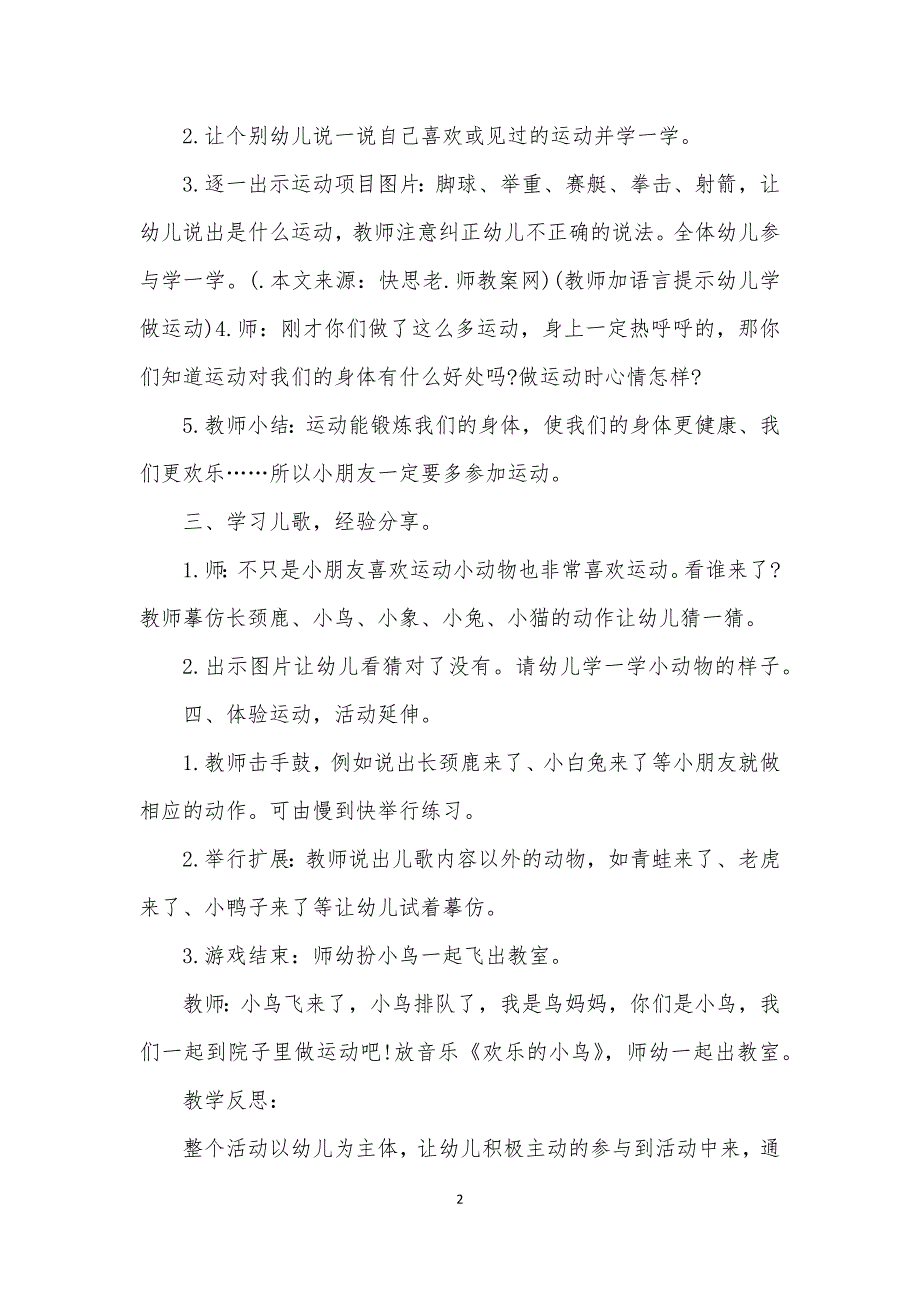 2.让个别幼儿说一说自己喜欢或见过的运动并学一学。
3.逐一出示运动项目图片：脚球、举重、赛艇、拳击、射箭，让
幼儿说出是什么运动，教师注意纠正幼儿不正确的说法。全体幼儿参
与学一学。(.本文来源：快思老.师教案网)(教师加语言提示幼儿学
做运动)4.师：刚才你们做了这么多运动，身上一定热呼呼的，那你
们知道运动对我们的身体有什么好处吗?做运动时心情怎样?
5.教师小结：运动能锻炼我们的身体，使我们的身体更健康、我
们更欢乐……所以小朋友一定要多参加运动。
三、学习儿歌，经验分享。
1.师：不只是小朋友喜欢运动小动物也非常喜欢运动。看谁来了?
教师摹仿长颈鹿、小鸟、小象、小兔、小猫的动作让幼儿猜一猜。
2.出示图片让幼儿看猜对了没有。请幼儿学一学小动物的样子。
四、体验运动，活动延伸。
1.教师击手鼓，例如说出长颈鹿来了、小白兔来了等小朋友就做
相应的动作。可由慢到快举行练习。
2.举行扩展：教师说出儿歌内容以外的动物，如青蛙来了、老虎
来了、小鸭子来了等让幼儿试着摹仿。
3.游戏结束：师幼扮小鸟一起飞出教室。
教师：小鸟飞来了，小鸟排队了，我是鸟妈妈，你们是小鸟，我
们一起到院子里做运动吧!放音乐《欢乐的小鸟》，师幼一起出教室。
教学反思：
整个活动以幼儿为主体，让幼儿积极主动的参与到活动中来，通
2